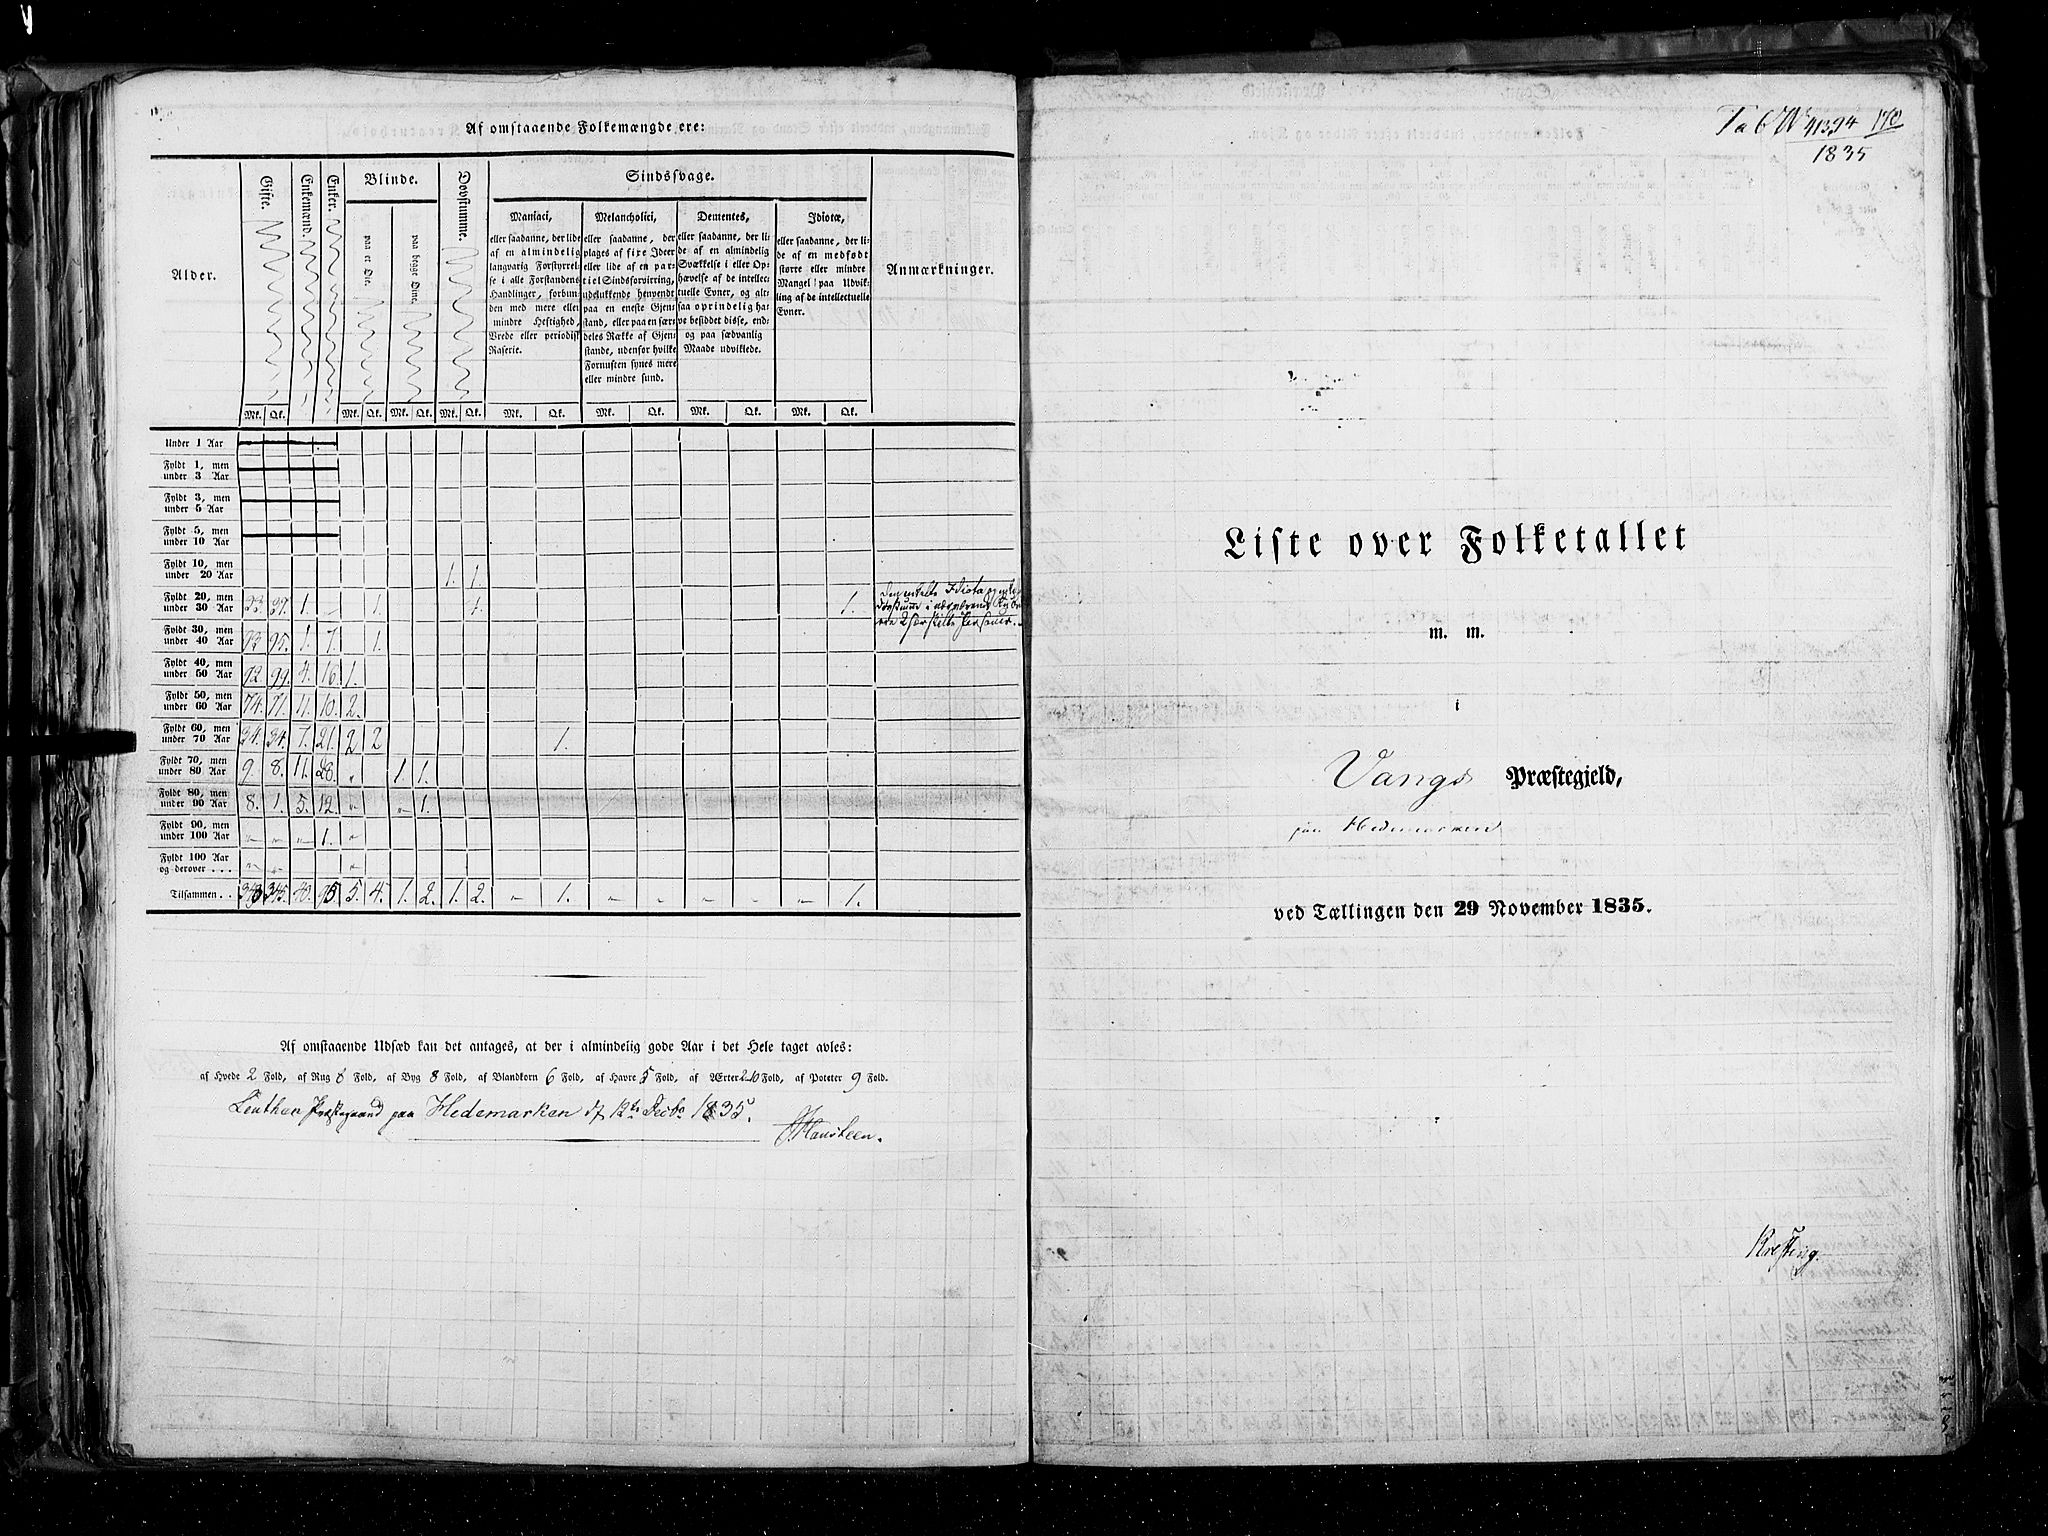 Af omstaaende Folkemængde ere:
Alder. Gifte. Enkemænd. Enker. Blinde. Døvstumme. Sindssvage. Anmærkninger.
paa et Øie. paa begge Øine.
Maniaci,
eller saadanne, der lide
af en almindelig
langvarig Forstyrrel-
se i alle Forstandens
Handlinger, forbun-
den med mere eller
mindre Heftighed,
Vrede eller periodisk
Raserie.
Melancholici,
eller saadanne, der
plages af fixe Ideer
eller lide af en par-
tiel Sindsforvirring,
udelukkende henvendt
paa en eneste Gjen-
stand, eller paa en sær-
deles Række af Gjen-
stande, udenfor hvilke
Fornuften synes mere
eller mindre sund.
Dementes,
eller saadanne, der li-
de af en almindelig
Svækkelse i eller Op-
hævelse af de intellec-
tuelle Evner, og alt-
saa oprindelig ha-
ve besiddet disse, end-
og paa sædvanlig
Maade udviklede.
Idiotæ,
eller saadanne, der li-
de af en medfødt
større eller mindre
Mangel paa Udvik-
ling af de intellectuelle
Evner.
Mk. Qk. Mk. Qk. Mk. Qk. Mk. Qk. Mk. Qk. Mk. Qk. Mk. Qk. Mk. Qk.
Under 1 Aar
Fyldt 1, men
under 3 Aar
Fyldt 3, men
under 5 Aar
Fyldt 5, men
under 10 Aar
Fyldt 10, men
under 20 Aar 1. 1.
Fyldt 20, men
under 30 Aar 33. 37. 1. 1. 1. 1.
Fyldt 30, men
under 40 Aar 93 95. 1. 7. 1.
Fyldt 40, men
under 50 Aar 92. 99. 4. 16. 1.
Fyldt 50, men
under 60 Aar 74. 71. 4. 10. 2.
Fyldt 60, men
under 70 Aar 34. 34. 7. 21. 2 2 1.
Fyldt 70, men
under 80 Aar 9. 8. 11. 28. 1. 1.
Fyldt 80, men
under 90 Aar 8. 1. 5. 12. 1.
Fyldt 90, men
under 100 Aar 1.
Fyldt 100 Aar
og derover . . .
Tilsammen . . 343 345. 40. 95. 5. 4. 1. 2. 1. 2. 1. 1.
Af omstaaende Udsæd kan det antages, at der i almindelig gode Aar i det Hele taget avles:
af Hvede 2 Fold, af Rug 8 Fold, af Byg 8 Fold, af Blandkorn 6 Fold, af Havre 5 Fold, af Ærter Fold, af Poteter 9 Fold.
Præstegaard paa Hedemarken d 12te Decbr 1835.
Hansteen.
1394 170
1835
Liste over Folketallet
m. m.
i
Vangs Præstegjeld,
paa Hedemarken
ved Tællingen den 29 November 1835.